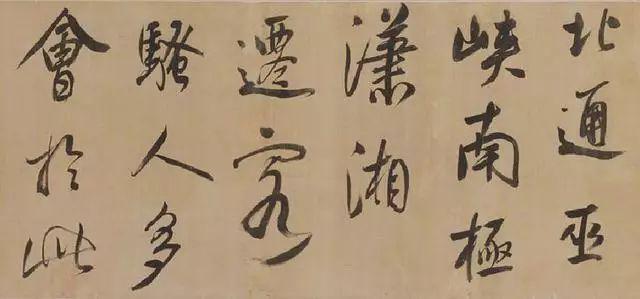 北通巫
峽南極
瀟湘
遷客
騷人多
會於此